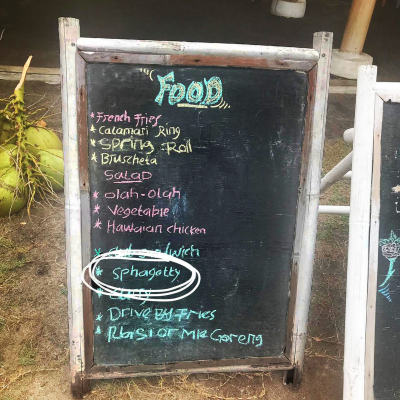 FOOD
* French Fries
* Calamari Ring
* Spring Roll
* Bruscheta
Salad
* olah-olah
* Vegetable
* Hawaian chicken
* Sphagetty
* Curry
* Drive by Fries
* Mie Goreng